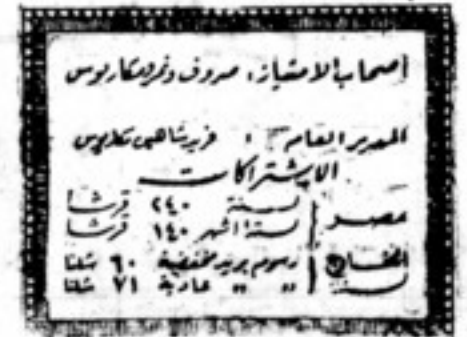 أصحاب الامتياز: صروف ونمر ومكاريوس
المدير العام : فريد شاهين مكاريوس
الاشتراكات
مصر ( لسنة ٢٤٠ قرشا
لستة اشهر ١٤٠ قرشا
الخارج ( رسوم بريد مخفضة ٦٠ شلنا
لسنة ( " " عادية ٧١ شلنا